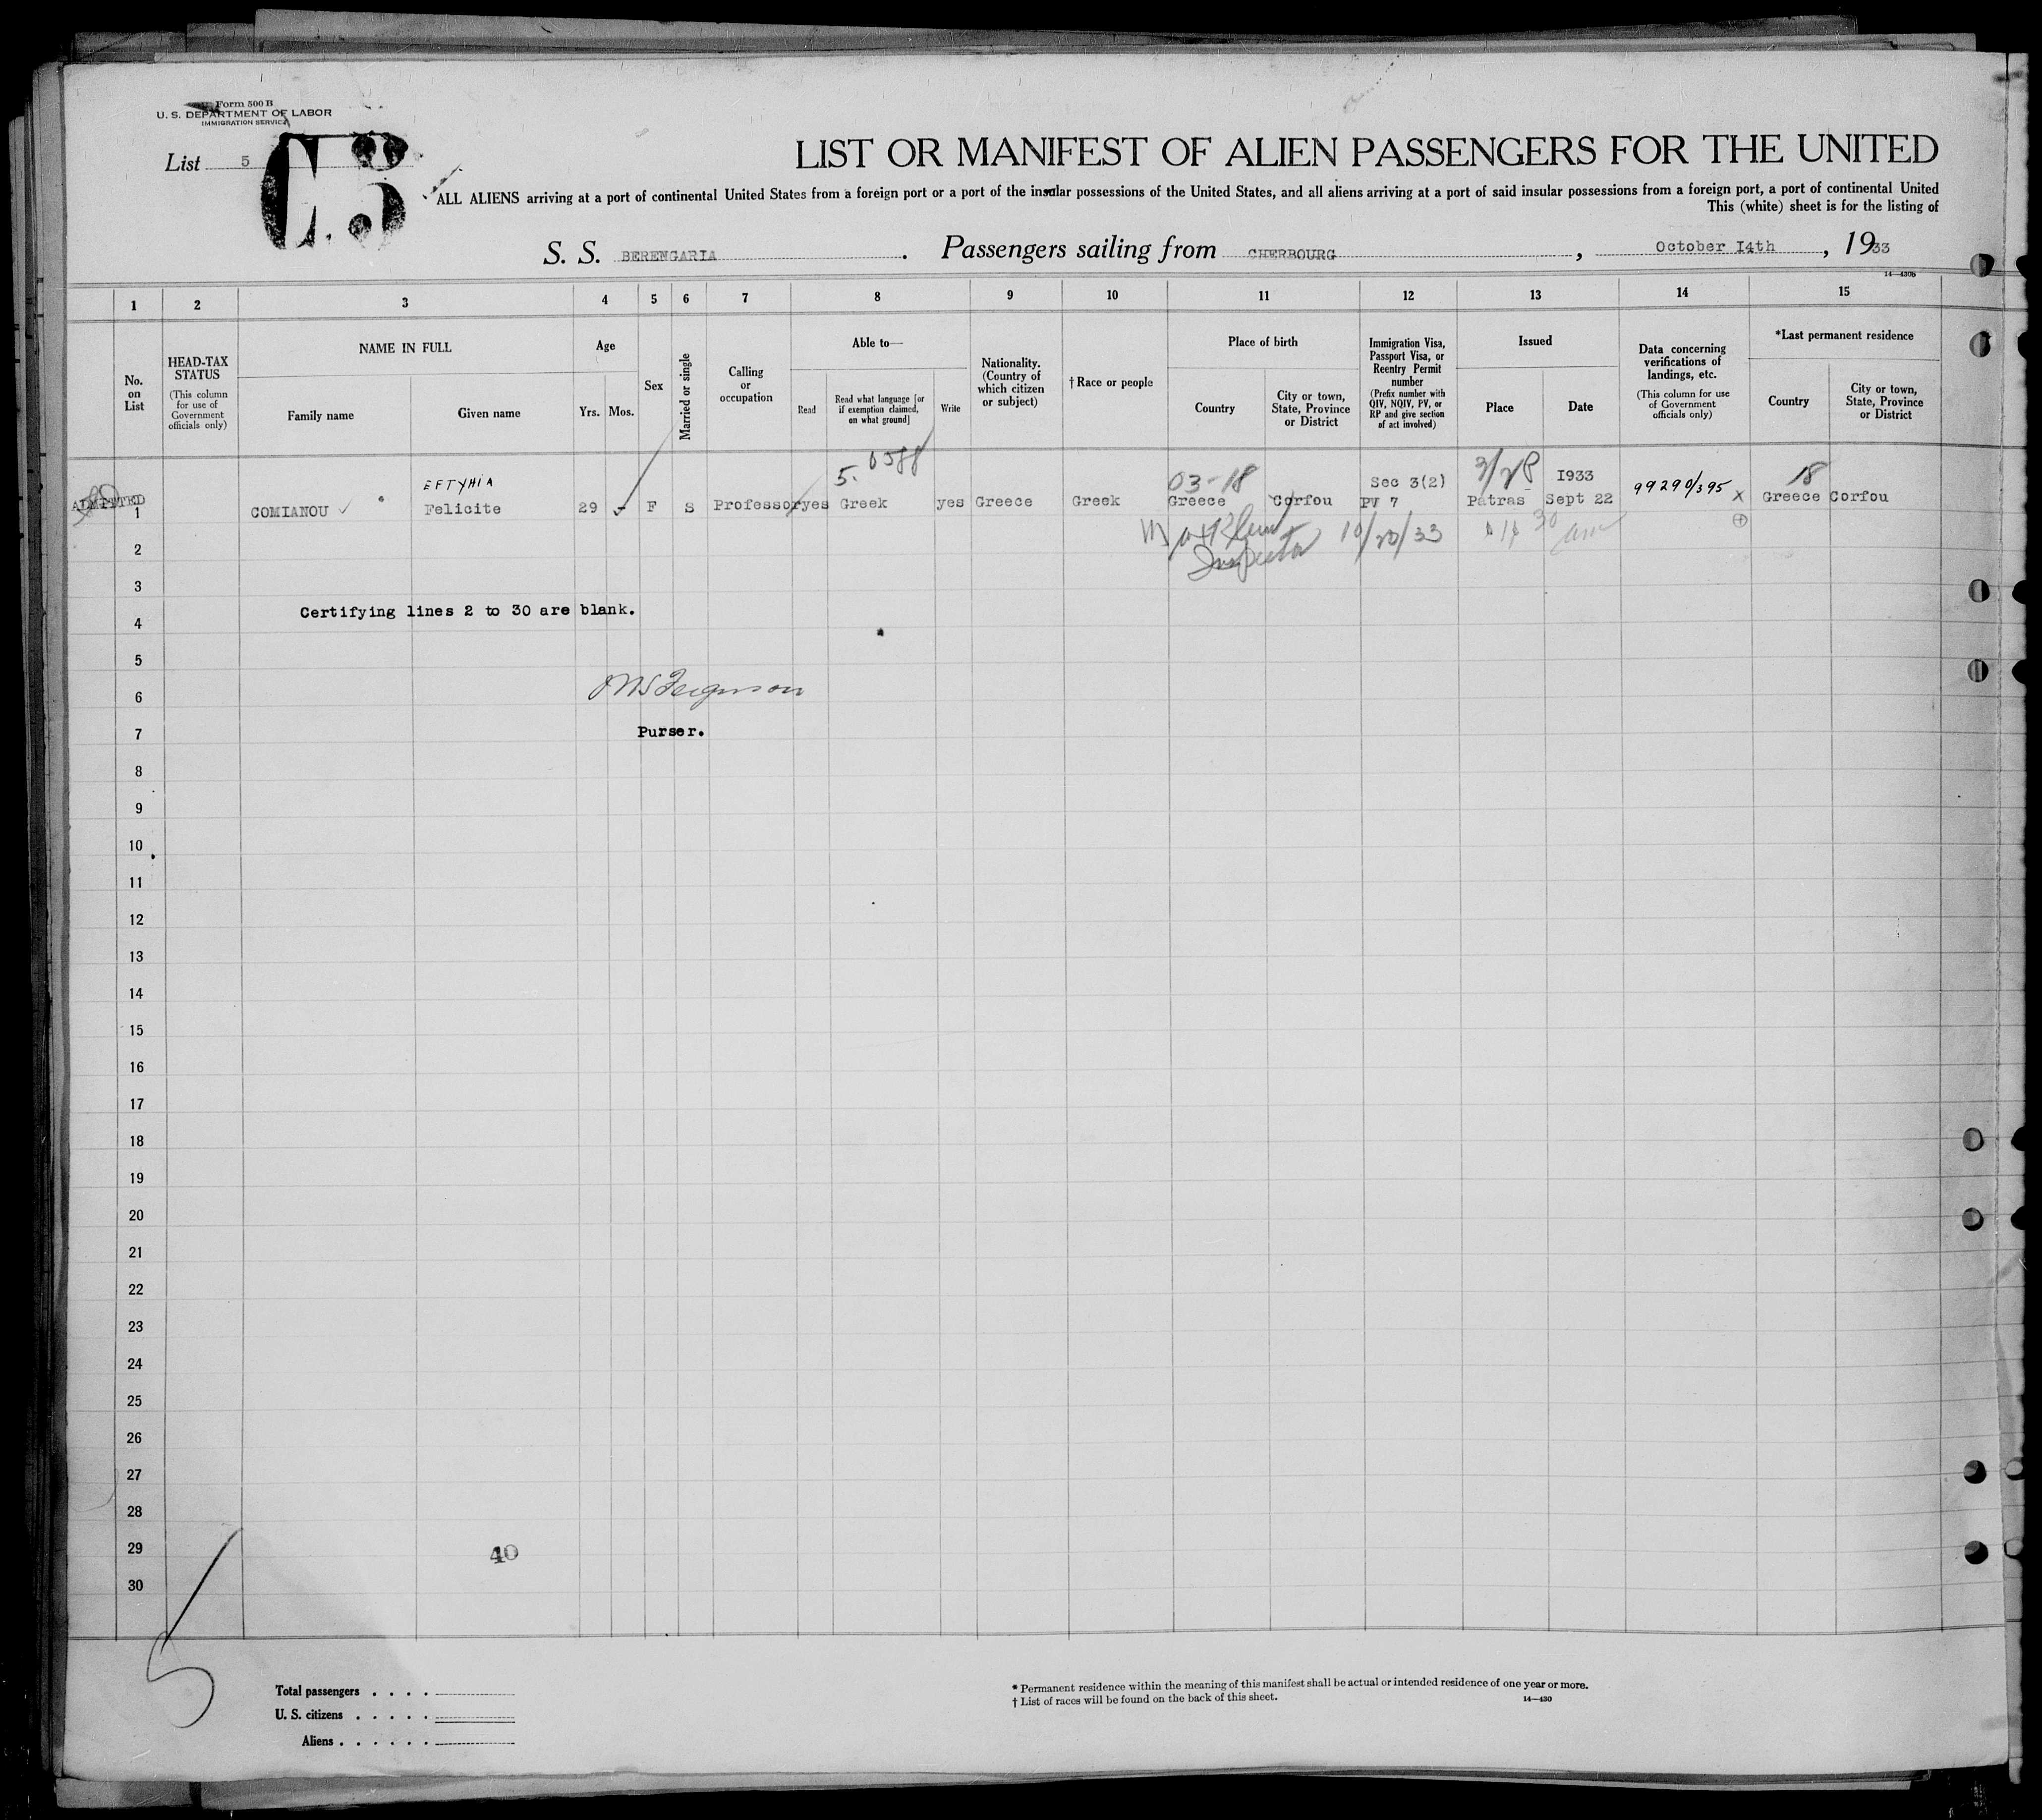 Form 500 B
U. S. DEPARTMENT OF LABOR
IMMIGRATION SERVICE
List 5
C. 5
LIST OR MANIFEST OF ALIEN PASSENGERS FOR THE UNITED
ALL ALIENS arriving at a port of continental United States from a foreign port or a port of the insular possessions of the United States, and all aliens arriving at a port of said insular possessions from a foreign port, a port of continental United
This (white) sheet is for the listing of
S. S. BERENGARIA . Passengers sailing from CHERBOURG , October I4th , 1933
14—430B
1 2 3 4 5 6 7 8 9 10 11 12 13 14 15
No. on List
HEAD-TAX STATUS (This column for use of Government officials only)
NAME IN FULL
Family name Given name
Age
Yrs. Mos.
Sex
Married or single
Calling or occupation
Able to—
Read
Read what language [or if exemption claimed, on what ground]
Write
Nationality. (Country of which citizen or subject)
†Race or people
Place of birth
Country
City or town, State, Province or District
Immigration Visa, Passport Visa, or Reentry Permit number (Prefix number with QIV, NQIV, PV, or RP and give section of act involved)
Issued
Place Date
Data concerning verifications of landings, etc. (This column for use of Government officials only)
*Last permanent residence
Country
City or town, State, Province or District
5. 6588
EFTYHIA 03-18 Sec 3(2) 3/28 I933 99290/395 x 18
ADMITTED 1 COMIANOU Felicite 29 F S Professor yes Greek yes Greece Greek Greece Corfou PV 7 Patras Sept 22 Greece Corfou
Inspector 10/20/33
2
3
Certifying lines 2 to 30 are blank.
4
5
6 Ferguson
7 Purser.
8
9
10
11
12
13
14
15
16
17
18
19
20
21
22
23
24
25
26
27
28
29 40
30
5
Total passengers . . . .
U. S. citizens . . . . .
Aliens . . . . . .
* Permanent residence within the meaning of this manifest shall be actual or intended residence of one year or more.
† List of races will be found on the back of this sheet. 14—430